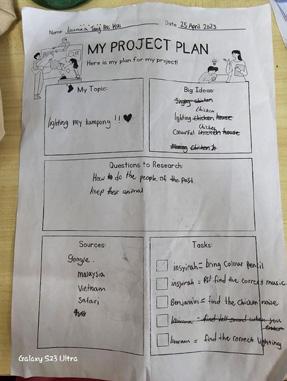 Name Date 25 April 2023
MY PROJECT PLAN
Here is my plan for my project!
My Topic:
lghting my kampong !! ♥
Big Ideas:
Singing chicken
chicken
lghting chicken house
Chicken
Colourful chicken house
Questions to Research:
How to do the people of the past
keep these animal
Sources:
Google.
malaysia
Vietnam
Safari
Tasks:
insyirah = bring Colour Pencil
insyirah = find the correct music
Benjamin = find the chicken noise
= find the correct lighting
Galaxy S23 Ultra